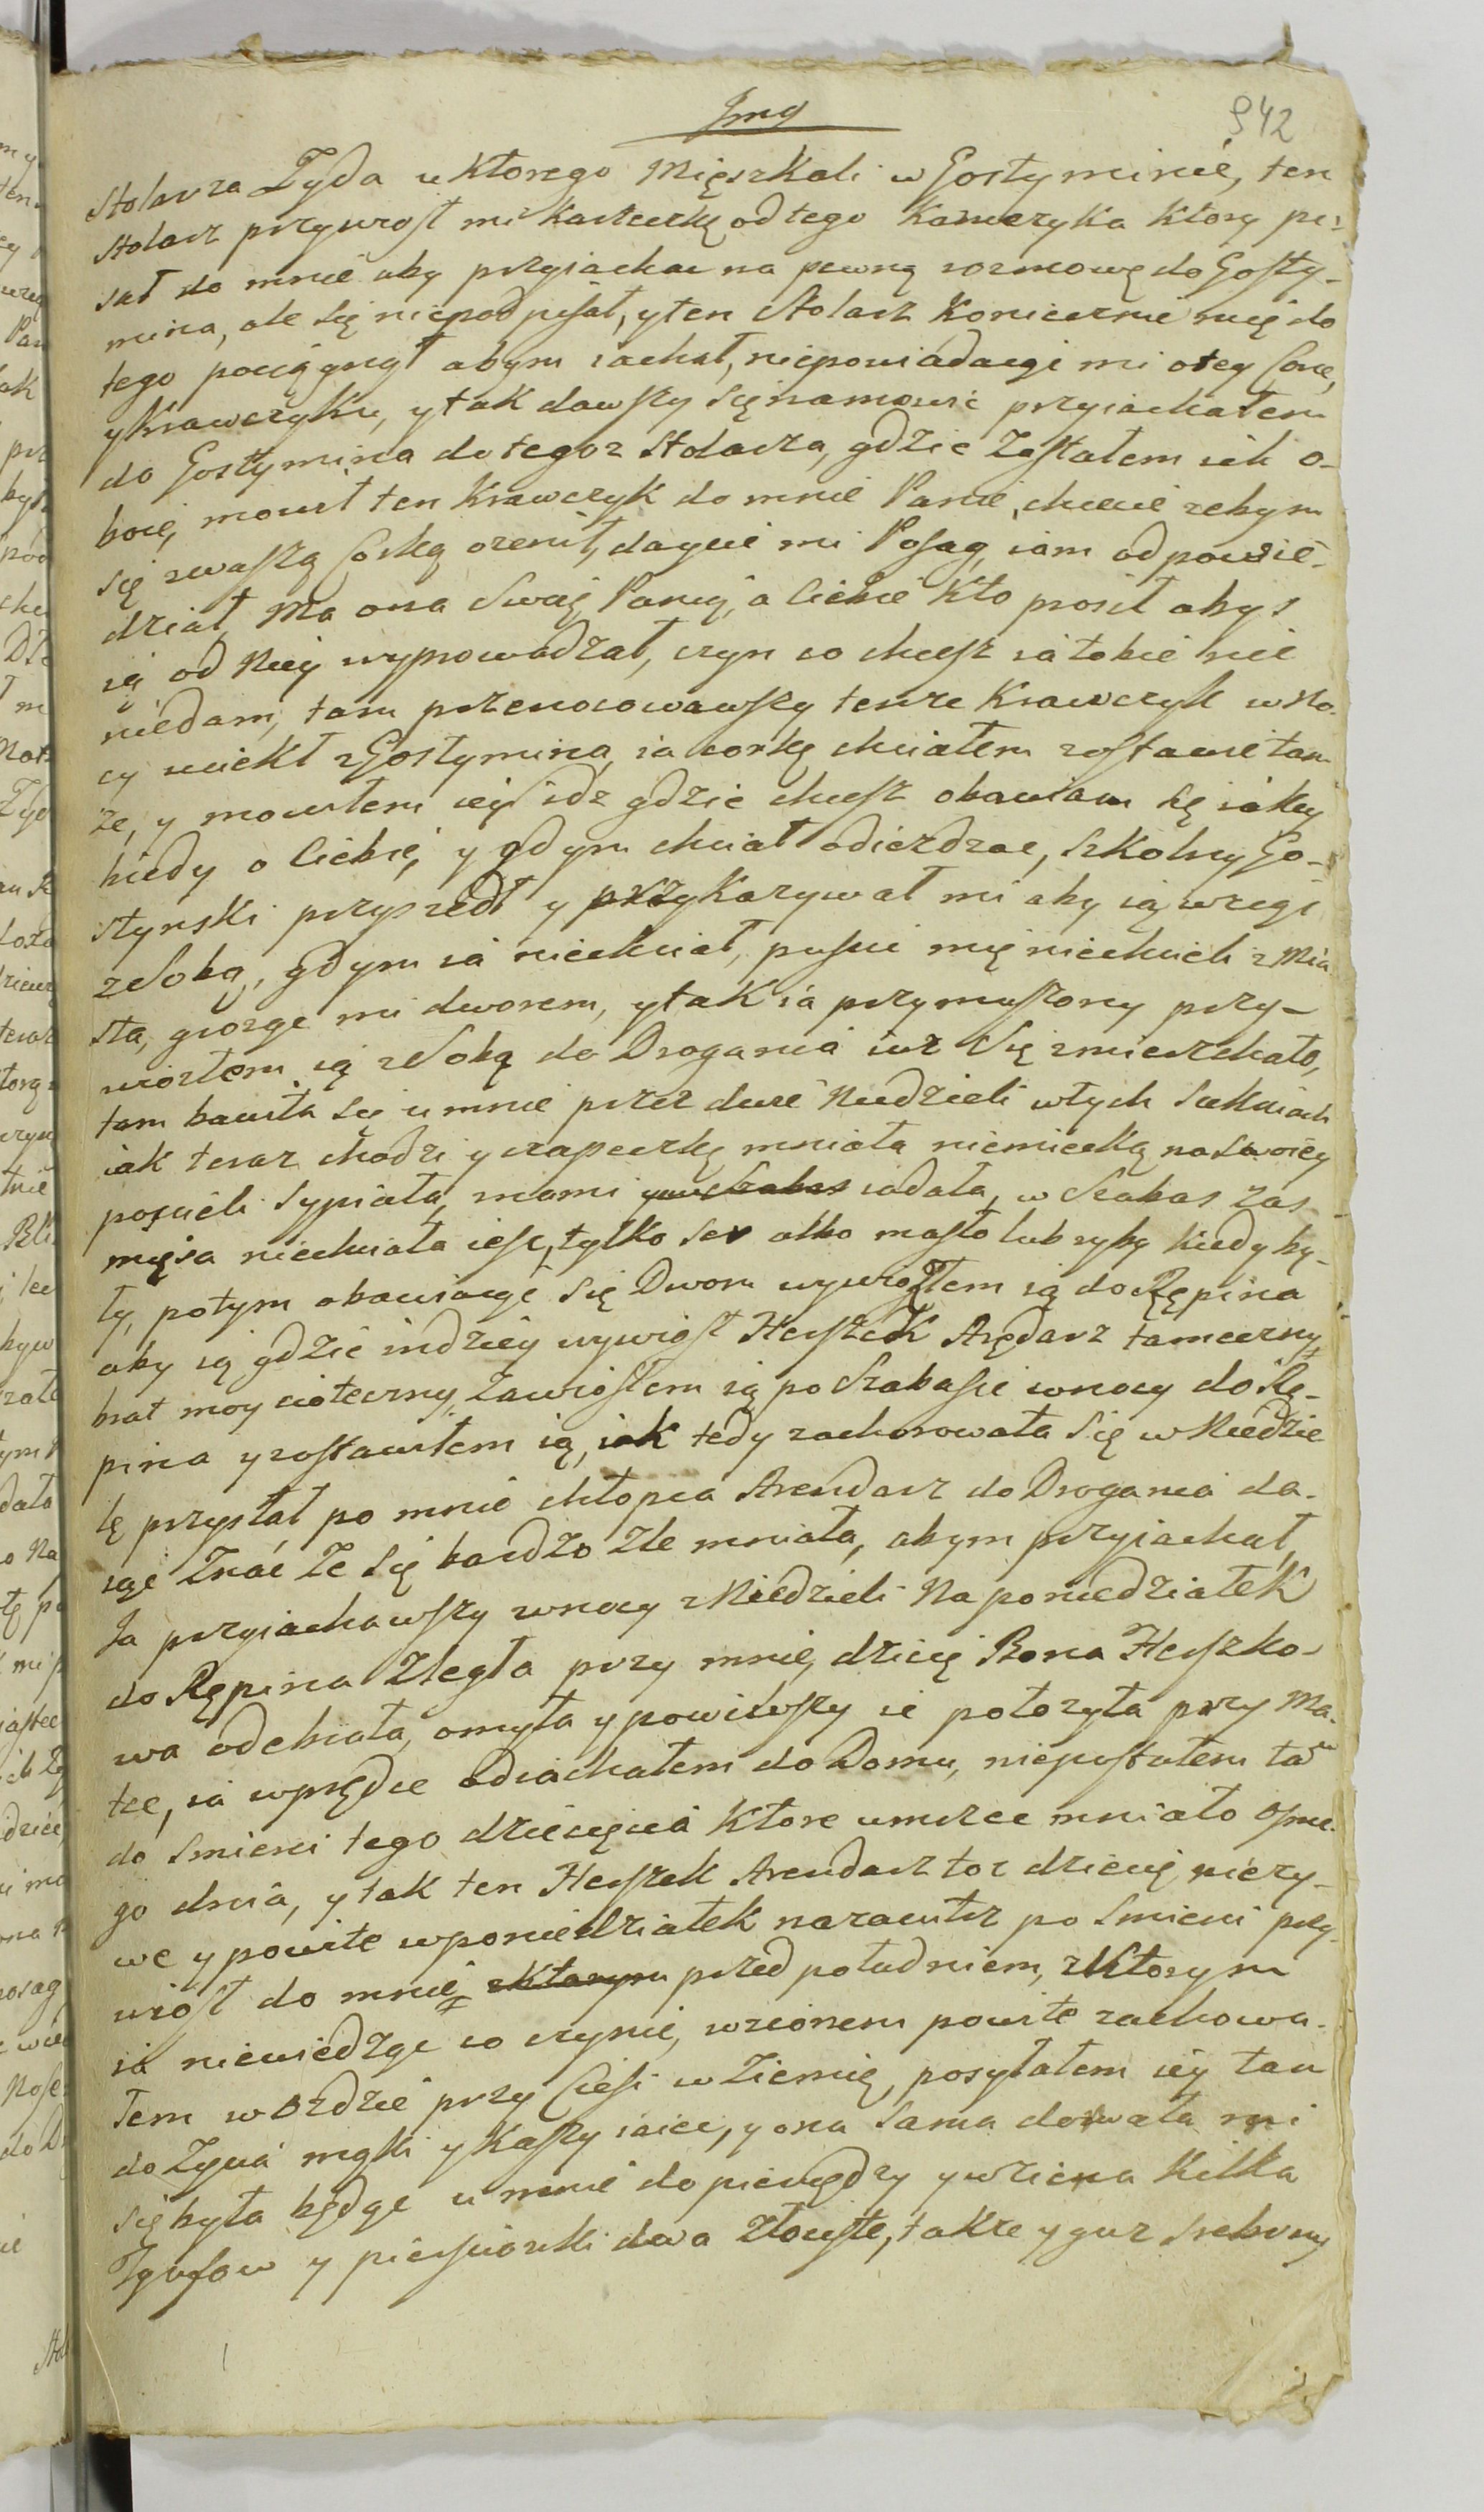 Img
942
Stolarza Zyda u ktorego Mięszkali w Gostyminie, ten
Stolarz przywiosł mi karteczkę od tego Kawczyka ktory pi-
sał do mnie aby przyiachac na pewną rozmowę do Gosty-
mina, ale się niepodpisał, y ten Stolarz koniecznie mię do
tego pociągnął abym iachał, niepowiadaiąc mi o tey Corce,
y Krawczyku, y tak dawszy się namowic przyiachałem
do Gostymina do tegoz Stolarza, gdzie Zastałem ich o-
boie, mowił ten Krawczyk do mnie Panie, chcecie zebym
się zwaszą Corką ozenił, daycie mi Posag, iam odpowie-
dział Ma ona Swoię Panią, a Ciebie kto prosił abys
ią od Niey wyprowadzał, czyn co chcesz ia tobie nic
niedam, tam przenocowawszy tenze Krawczyk w No-
cy uciekł z Gostymina, ia corkę chciałem zostawic tam
ze, y mowiłem iey idz gdzie chcesz obawiam się iakey
biedy o Ciebie, y gdym chciał odiezdzac, Szkolny Go-
stynski przyszedł y przykazywał mi aby ią wziąc
z Sobą, gdym ia niechciał, puscic mię niechcieli z Mia-
sta, grożąc mi dworem, y tak ia przymuszony przy-
wiozłem ią z Sobą do Drogania iuz Się zmierzchało,
tam bawiła się u mnie przez dwie Niedzieli w tych Sukniach
iak teraz chodzi y czapeczkę mniała niemiecką na Swoiey
poscieli Sypiała, z nami iadała, w Szabas zas
mięsa niechciała iesc, tylko Ser albo masło lub ryby kiedy by-
ły, potym obawiaiąc się Dworu wywiozłem ią do Rępina
aby ią gdzie indziey wywiosł Herszek Arędarz tameczny,
brat moy cioteczny, Zawiosłem ią po Szabasie w nocy do Rę-
pina y zostawiłem ią, iak tedy zachorowała Się w Niedzie
lę przysłał po mnie chłopca Arendarz do Drogania da-
iąc Znac Ze Się bardzo Zle mniała, abym przyiachał,
Ja przyiachawszy w nocy z Niedzieli Na poniedziałek
do Rępina Zległa przy mnie, dziecię Rona Herszko-
wa odebrała, omyła y powiwszy ie położyła przy Ma-
tce, ia wprędce odiachałem do Domu, niepostałem ta
do Smierci tego dziecięcia ktore umrzec mniało osme-
go dnia, y tak ten Herszek Arendarz toz dziecię niezy-
we y powite w poniedziałek nazaiutrz po Smierci przy-
wiosł do mnie przed południem, z ktorym
ia niewiedząc co czynic, wzionem powite zachowa-
łem w Ozdzie przy Ciesi w Ziemię, posyłałem iey tam
do Zycia mąki y kaszy iaiec, y ona Sama dorwała mi
się była będąc u mnie do pieniędzy y wzieła kilka
Tynfow y piersciąki dwa Złociste, także y guz srebrny